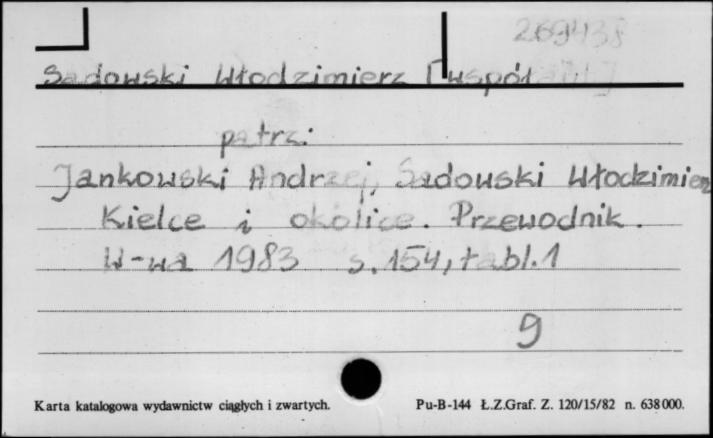 269438
Sadowski Włodzimierz [współaut.]
patrz:
Jankowski Andrzej, Sadowski Włodzimierz
Kielce i okolice. Przewodnik.
W-wa 1983 s. 154, tabl. 1
9
Karta katalogowa wydawnictw ciągłych i zwartych. Pu-B-144 Ł.Z.Graf. Z. 120/15/82 n. 638 000.